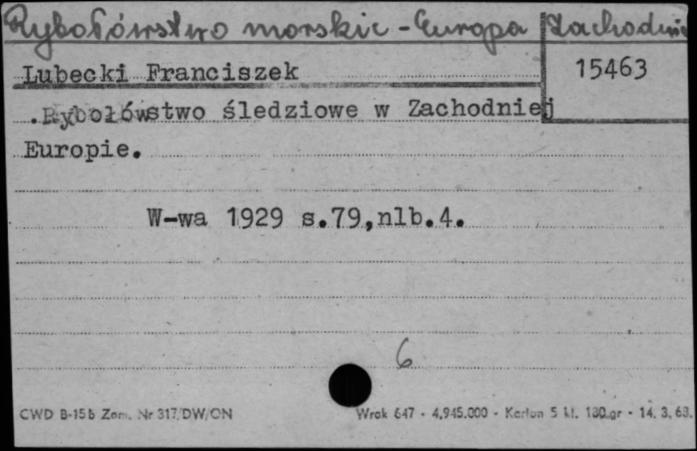 Rybołówstwo morskie - Europa Zachodnia
Lubecki Franciszek
15463
.Rybołówstwo śledziowe w Zachodniej
Europie.
W-wa 1929 s.79,nlb.4.
6
CWD B-15b Zam. Nr 317/DW/ON
Wrak 647 - 4.945.000 - Karton 5 kl. 180 gr - 14. 3. 63.